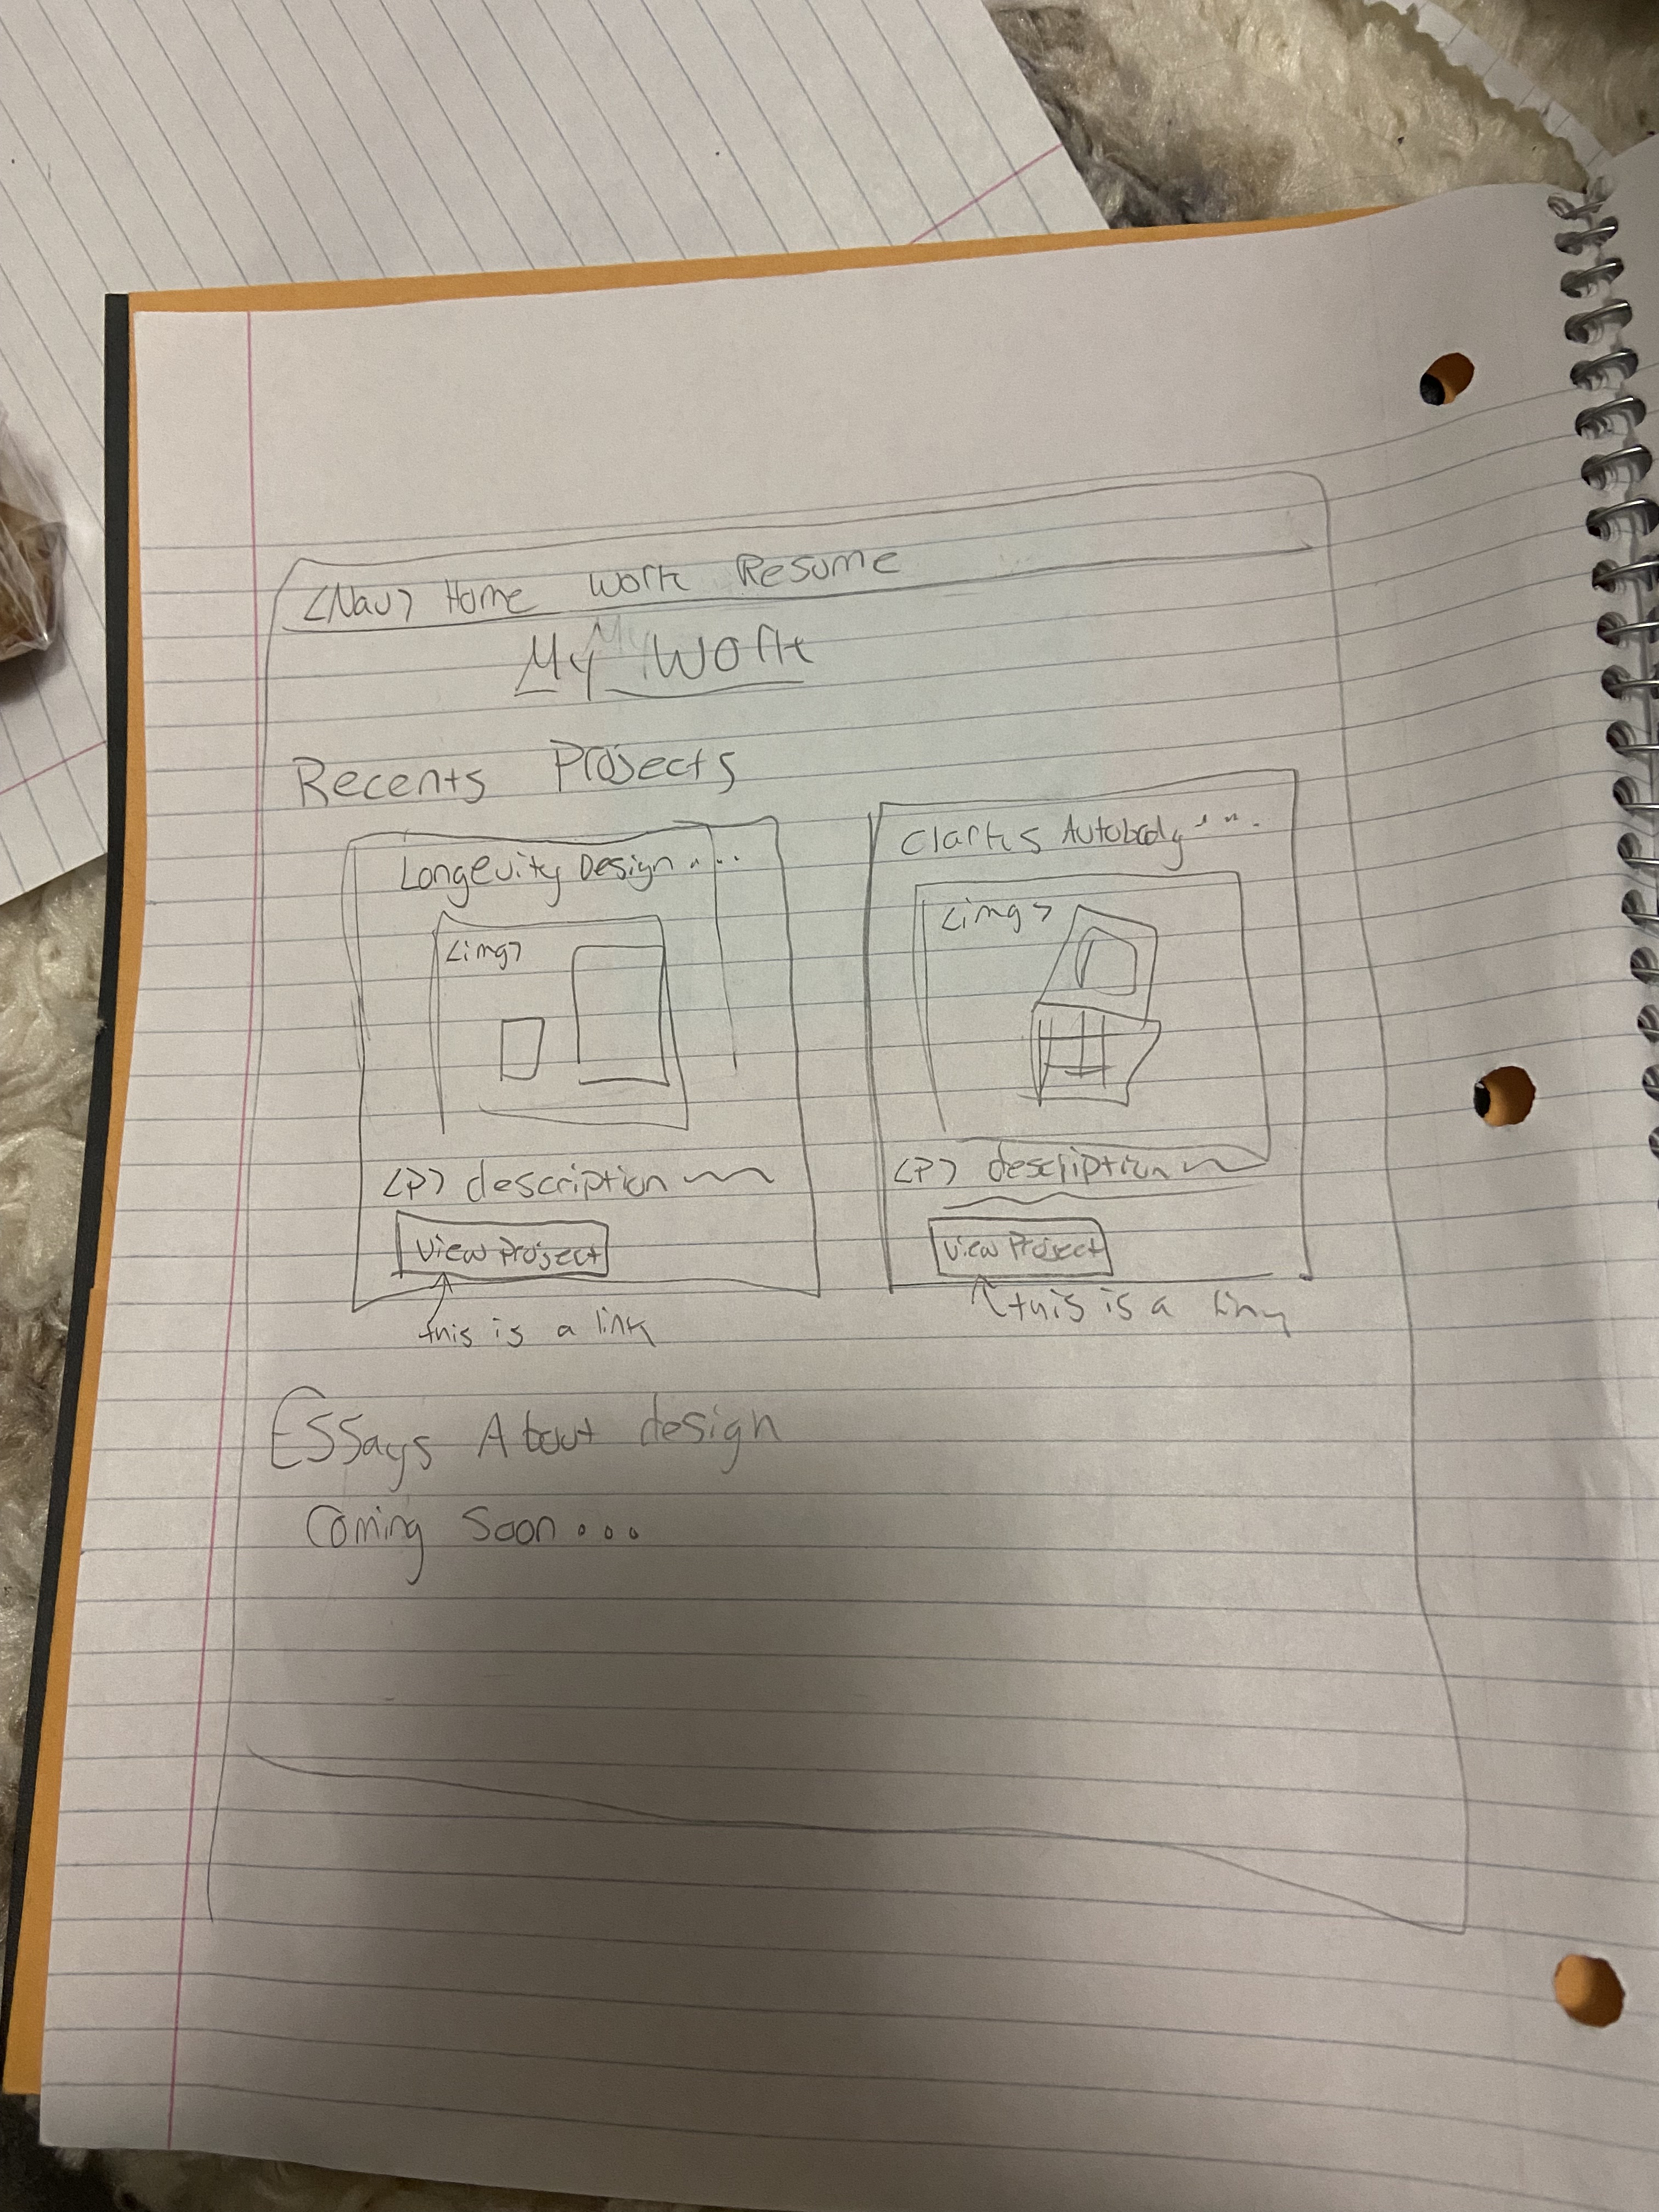 <Nav> Home Work Resume
My Work
Recents Projects
Longevity Design....
<img>
<P> description
View Project
this is a link
Clarks Autobody....
<img>
<P> description
View Project
this is a link
Essays About design
Coming Soon...